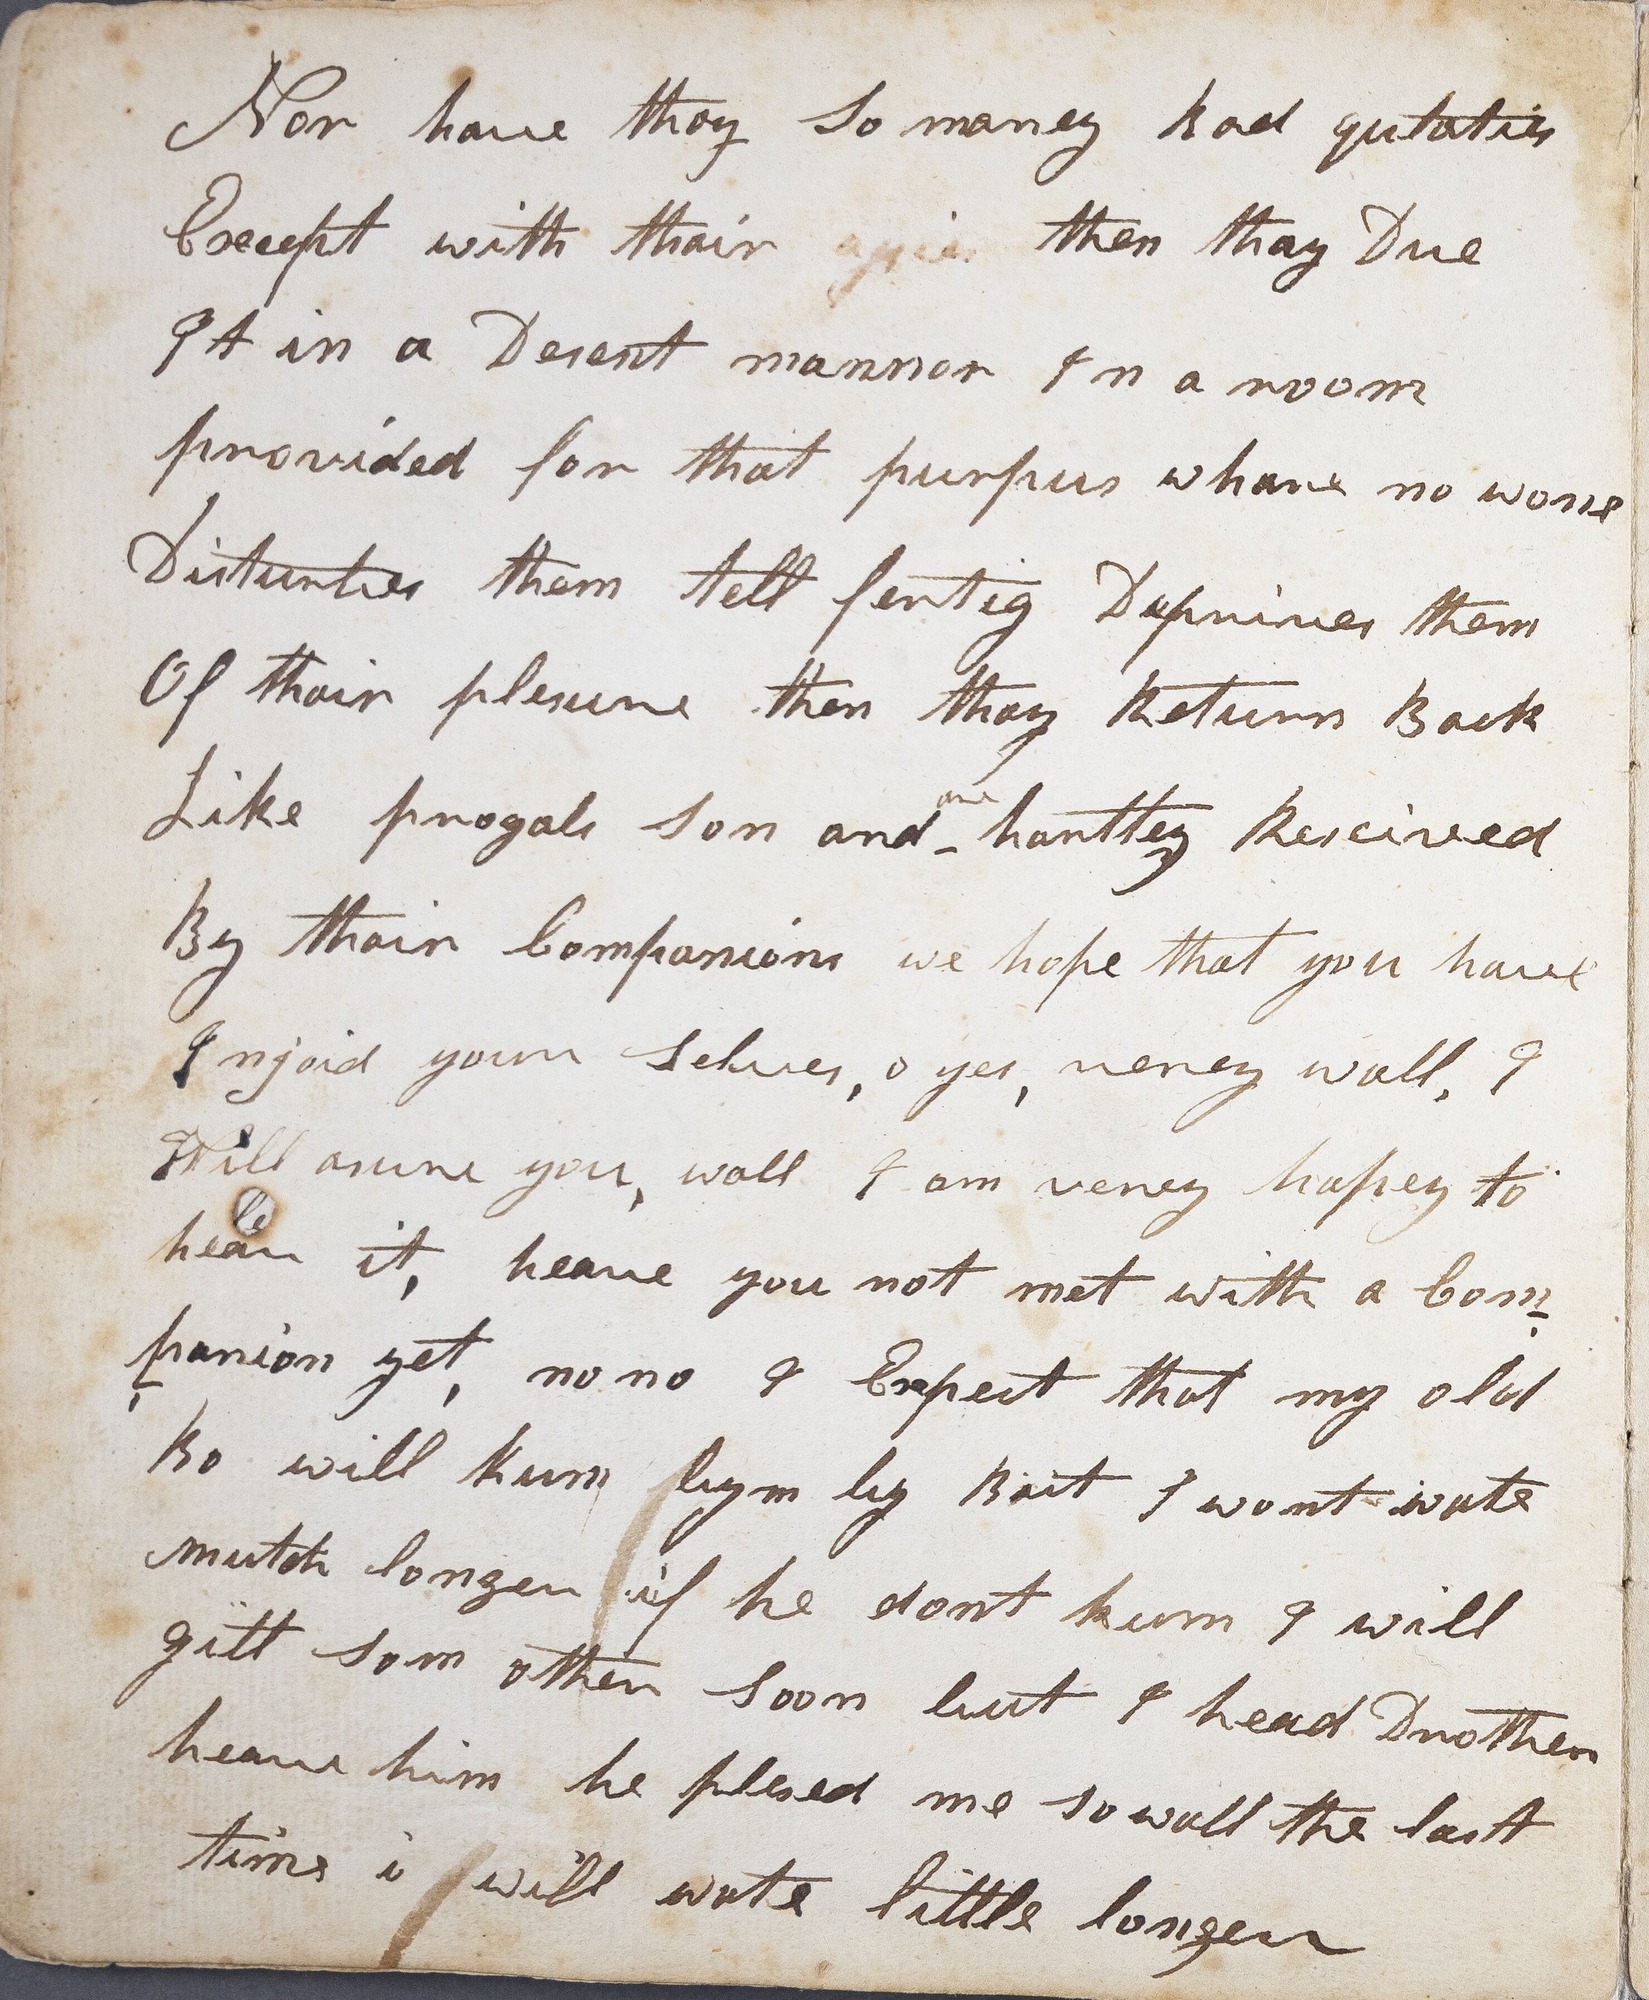 Nor have thay So maney Bad qutatis
Except with thair then thay Due
It in a Desent mannor In a room
provided for that purpus whare no wone
Disturbes them tell fertig Deprives them
Of thair plesure then thay Return Back
Like progals son and are harttey Reseived
By thair Companions we hope that you have
Injoid your Selves, o yes, verey wall, I
Will asure you, wall I am verey hapey to
hear it, heave you not met with a Com-
panion yet, no no I Expect that my old
Bo will kum bym by Bait I wont wate
mutch longer if he dont kum I will
gitt som other Soon but I head Drother
heave him he plesed me so wall the last
time i will wate little longer